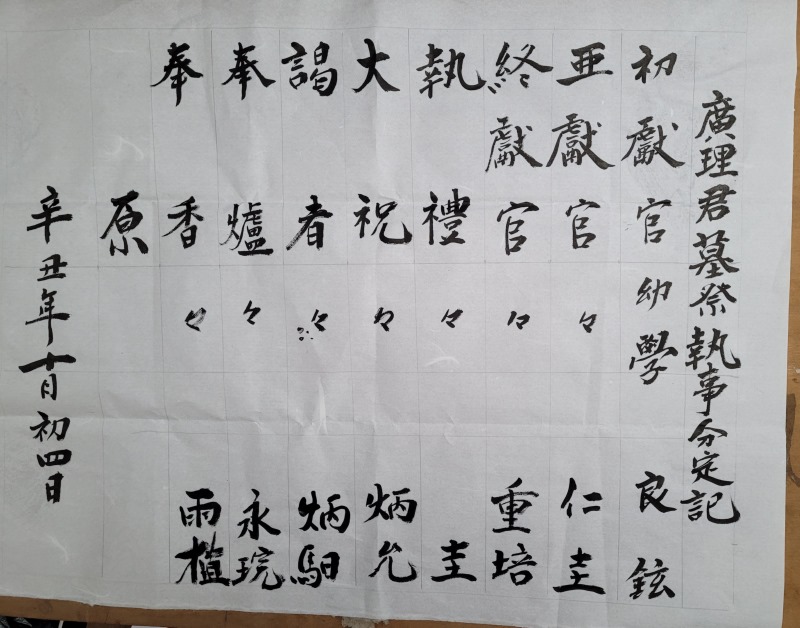 廣理君墓祭執事分定記
初獻官幼學 良鉉
亜獻官々 仁圭
終獻官々 重培
執禮々 圭
大祝々 炳允
謁者々 炳馹
奉爐々 永琓
奉香々 雨植
原
辛丑年十月初四日